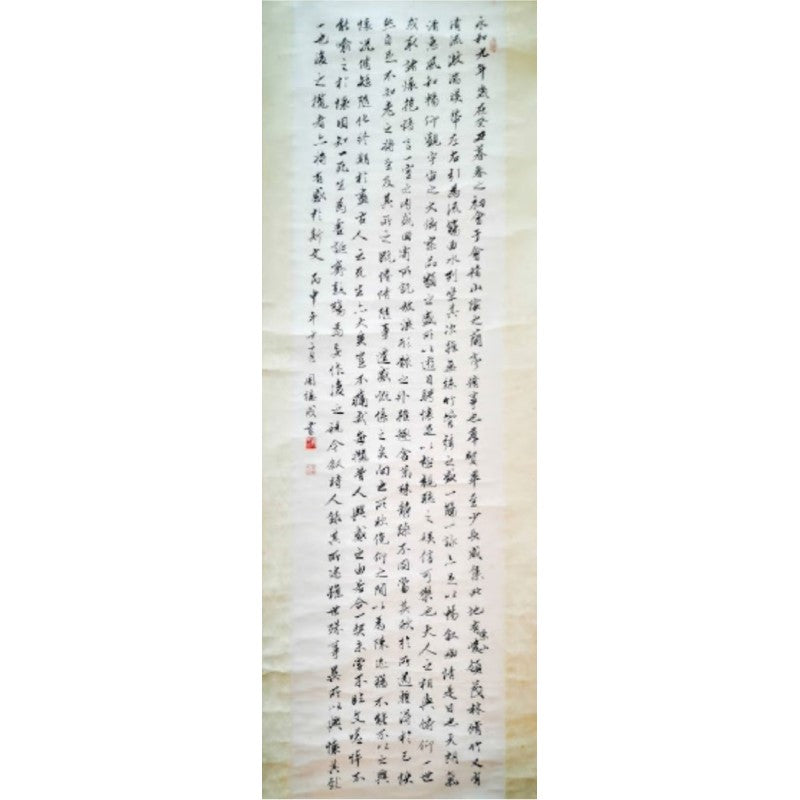 永和九年歲在癸丑暮春之初會于會稽山陰之蘭亭脩事也羣賢畢至少長咸集此地有崇山峻領茂林脩竹又有
清流激湍暎帶左右引為流觴曲水列坐其次雖無絲竹管弦之盛一觴一詠亦足以暢敘幽情是日也天朗氣
清惠風和暢仰觀宇宙之大俯察品類之盛所以遊目騁懷足以極視聽之娛信可樂也夫人之相與俯仰一世
或取諸懷抱悟言一室之內或因寄所託放浪形骸之外雖趣舍萬殊靜躁不同當其欣於所遇暫得於己快
然自足不知老之將至及其所之既倦情隨事遷感慨係之矣向之所欣俛仰之間以為陳迹猶不能不以之興
懷況脩短隨化終期於盡古人云死生亦大矣豈不痛哉每攬昔人興感之由若合一契未嘗不臨文嗟悼不
能喻之於懷固知一死生為虛誕齊彭殤為妄作後之視今敘時人錄其所述雖世殊事異所以興懷其致
一也後之攬者亦將有感於斯文 丙申年 周 書